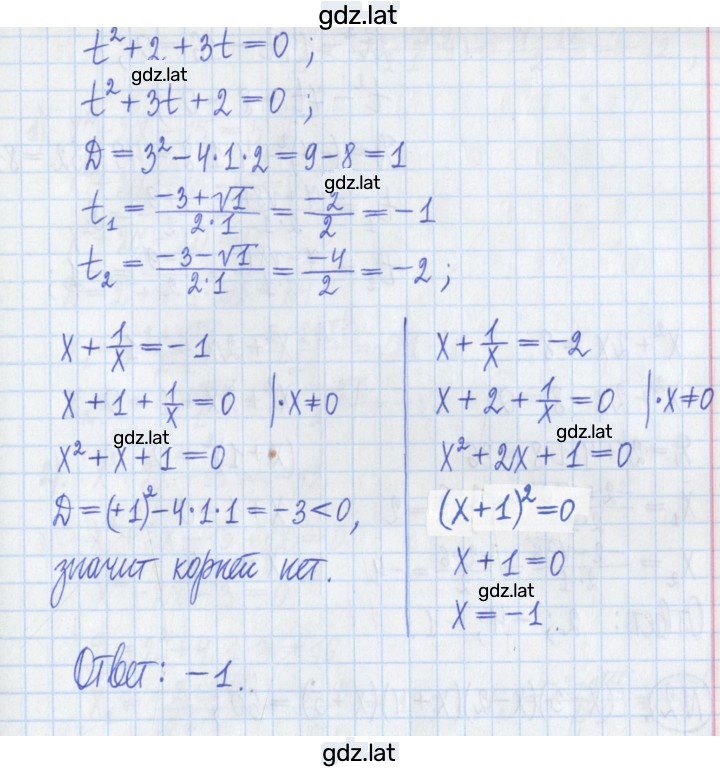 gdz.lat
t² + 2 + 3t = 0 ;
gdz.lat
t² + 3t + 2 = 0 ;
Д = 3² − 4·1·2 = 9 − 8 = 1
gdz.lat
t₁ = (−3 + √1)/(2·1) = −2/2 = −1
t₂ = (−3 − √1)/(2·1) = −4/2 = −2 ;
x + 1/x = −1
x + 1 + 1/x = 0 |·x ≠ 0
gdz.lat
x² + x + 1 = 0
Д = (+1)² − 4·1·1 = −3 < 0,
значит корней нет.
x + 1/x = −2
x + 2 + 1/x = 0 |·x ≠ 0
gdz.lat
x² + 2x + 1 = 0
(x + 1)² = 0
x + 1 = 0
gdz.lat
x = −1.
Ответ: −1.
gdz.lat